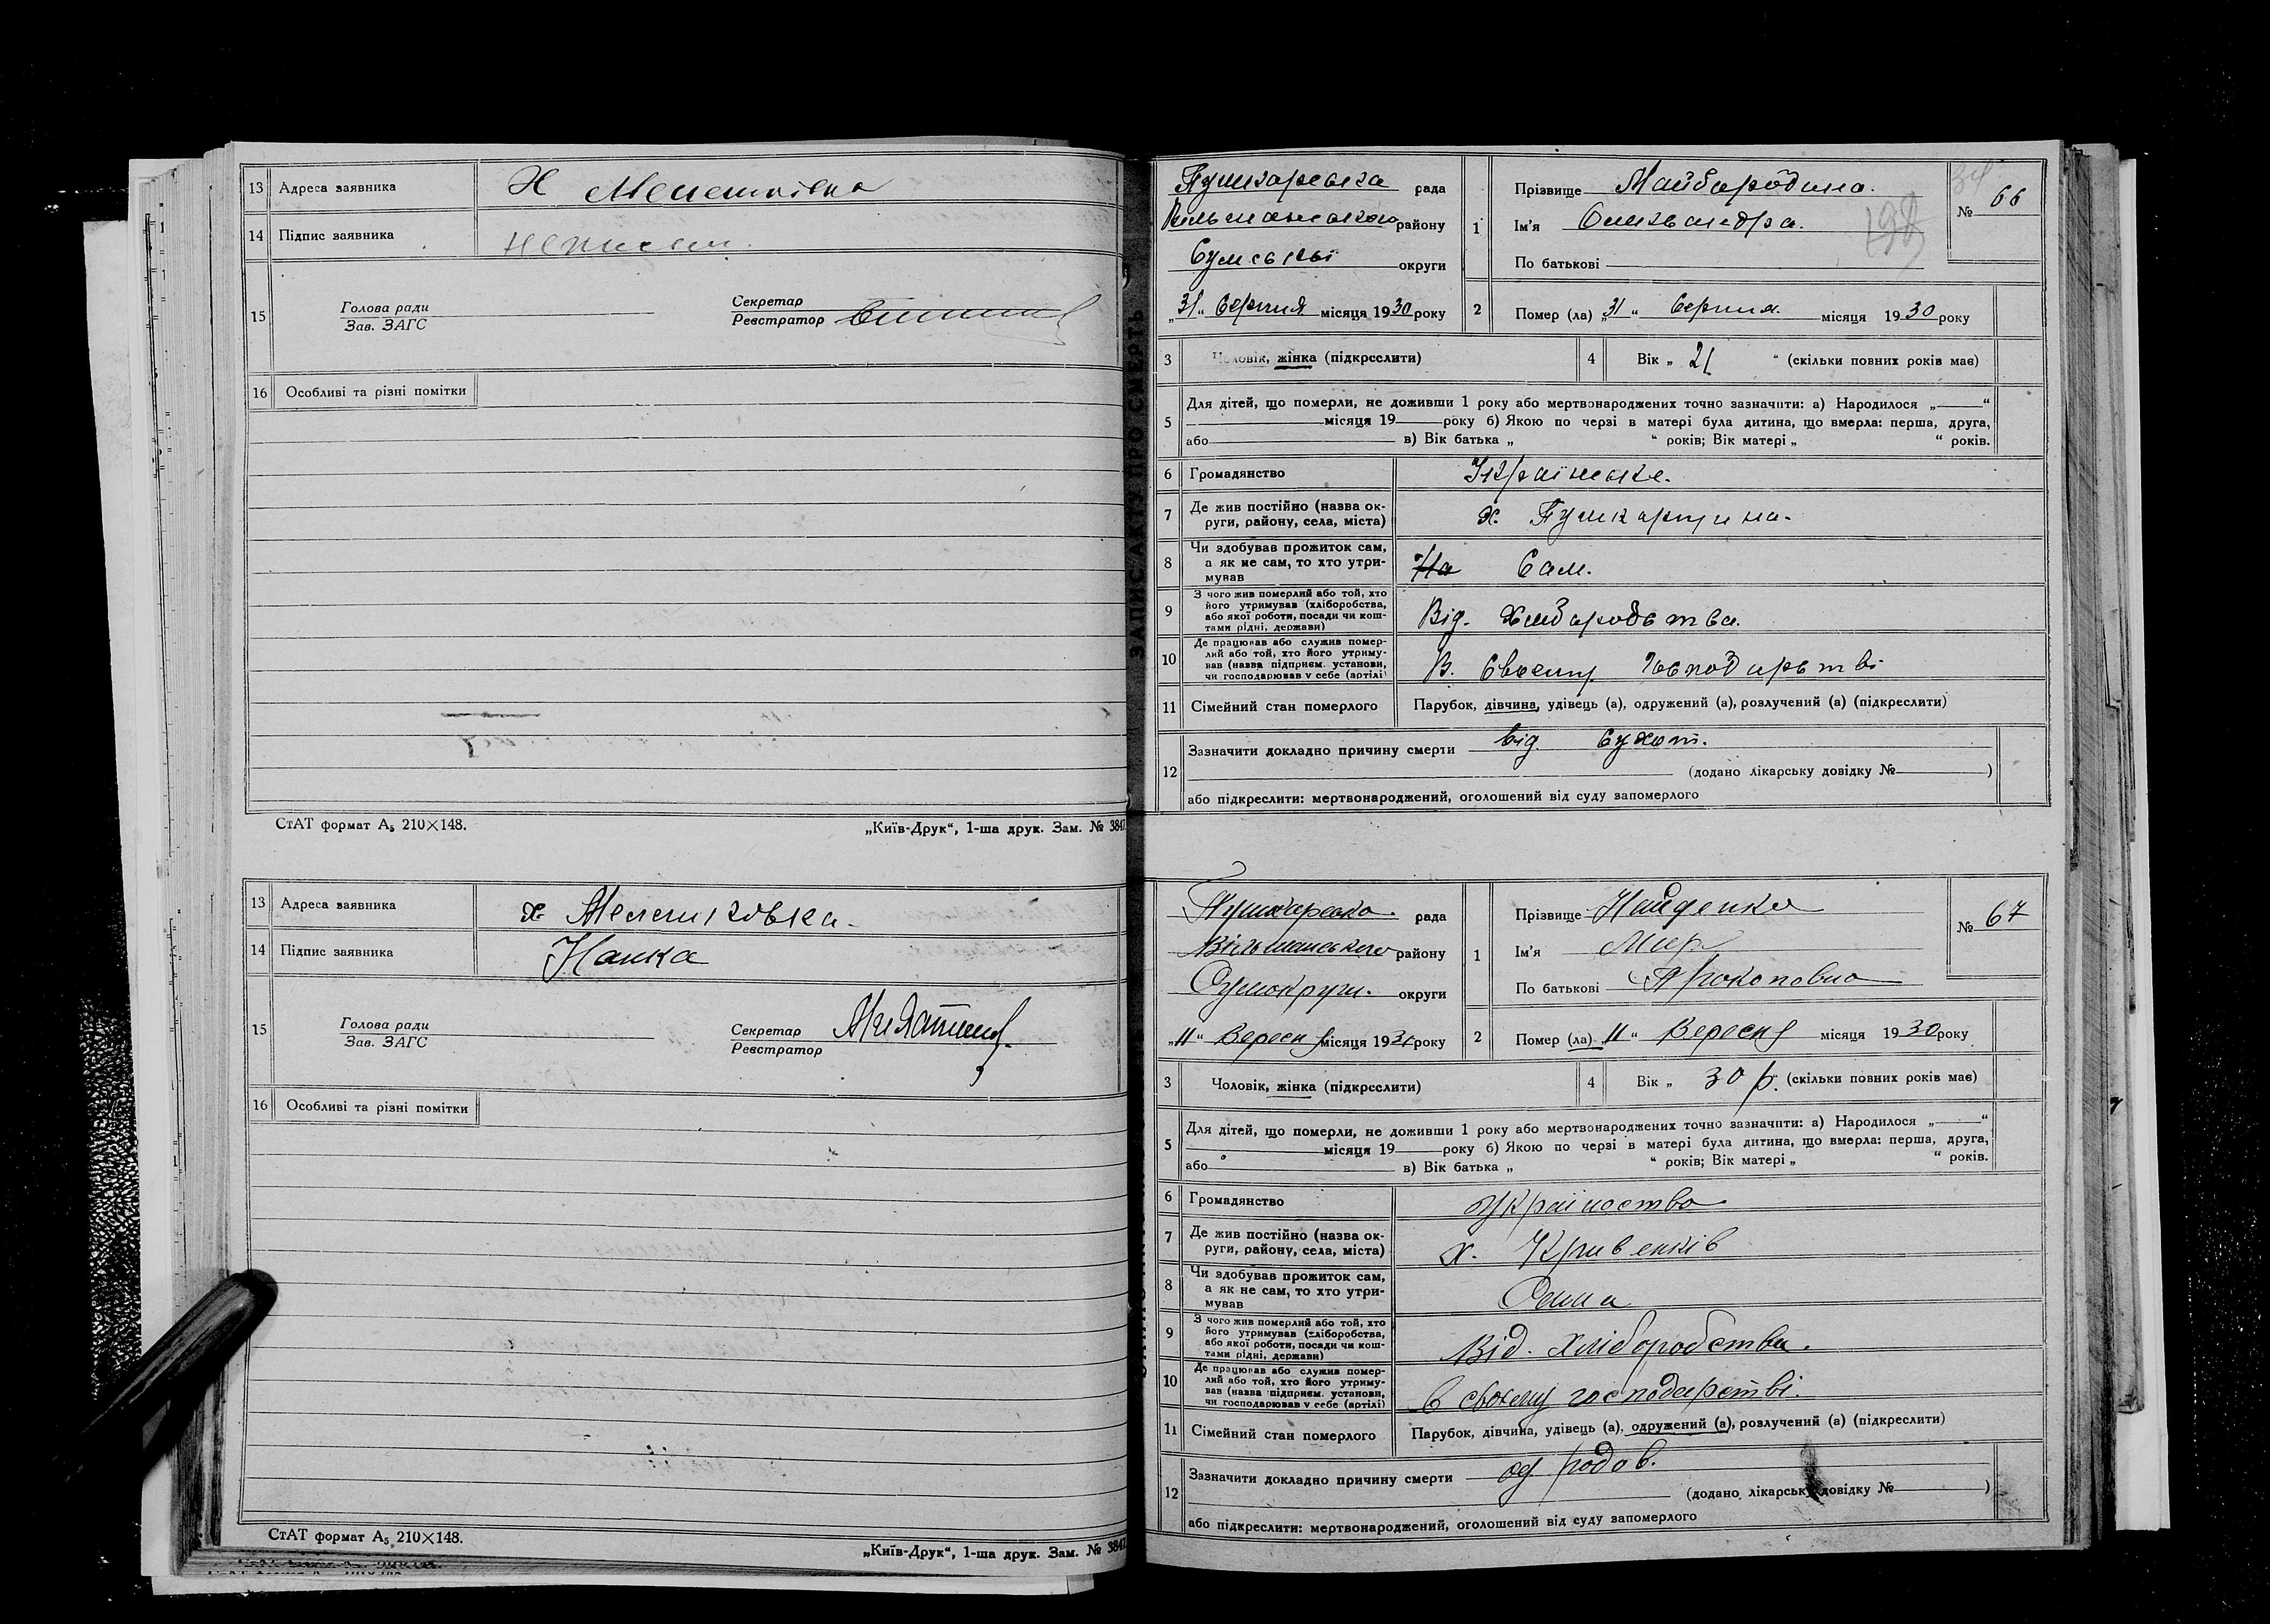 13 Адреса заявника Х Мелешківка
14 Підпис заявника неписьм.
15 Голова ради
Зав. ЗАГС
Секретар
Реєстратор
16 Особливі та різні помітки
СтАТ формат А5 210×148. „Київ-Друк“, 1-ша друк. Зам. № 384
13 Адреса заявника х. Мелешковка.
14 Підпис заявника
15 Голова ради
Зав. ЗАГС
Секретар
Реєстратор
16 Особливі та різні помітки
СтАТ формат А5 210×148.
„Київ-Друк“, 1-ша друк. Зам. № 384
ЗАПИС АКТУ ПРО СМЕРТЬ
Пушкарська рада
Вільшанського району
Сумської округи
„31“ Серпня місяця 1930 року
1 Прізвище Майбородина.
Ім'я Олександра.
По батькові
№ 66
198
2 Помер (ла) „31“ Серпня. місяця 1930 року
3 Чоловік, жінка (підкреслити)
4 Вік „ 21 “ (скільки повних років має)
5 Для дітей, що померли, не доживши 1 року або мертвонароджених точно зазначити: а) Народилося „ “
місяця 19 року б) Якою по черзі в матері була дитина, що вмерла: перша, друга,
або в) Вік батька „ “ років; Вік матері „ “ років.
6 Громадянство Українське.
7 Де жив постійно (назва округи, району, села, міста) х. Пушкарщина.
8 Чи здобував прожиток сам, а як не сам, то хто утримував На Сам.
9 З чого жив померлий або той, хто його утримував (хліборобства, або якої роботи, посади чи коштами рідні, держави) Від. Хліборобства.
10 Де працював або служив померлий або той, хто його утримував (назва підприєм. установи, чи господарював у себе (артілі) В. Своєму Господарстві
11 Сімейний стан померлого Парубок, дівчина, удівець (а), одружений (а), розлучений (а) (підкреслити)
12 Зазначити докладно причину смерти від Сухот.
(додано лікарську довідку № )
або підкреслити: мертвонароджений, оголошений від суду запомерлого
Пушкарська. рада
Вільшанського району
Сумокруги. округи
„11“ Вересня місяця 1930 року
1 Прізвище Найденко
Ім'я
По батькові Прокоповна
№ 67
2 Помер (ла) „11“ Вересня місяця 1930 року
3 Чоловік, жінка (підкреслити)
4 Вік „ 30 р. (скільки повних років має)
5 Для дітей, що померли, не доживши 1 року або мертвонароджених точно зазначити: а) Народилося „ “
місяця 19 року б) Якою по черзі в матері була дитина, що вмерла: перша, друга,
або в) Вік батька „ “ років; Вік матері „ “ років.
6 Громадянство Українство
7 Де жив постійно (назва округи, району, села, міста) х. Кривенків
8 Чи здобував прожиток сам, а як не сам, то хто утримував Сама
9 З чого жив померлий або той, хто його утримував (хліборобства, або якої роботи, посади чи коштами рідні, держави) Від. хліборобства.
10 Де працював або служив померлий або той, хто його утримував (назва підприєм. установи, чи господарював у себе (артілі) в своєму господарстві.
11 Сімейний стан померлого Парубок, дівчина, удівець (а), одружений (а), розлучений (а) (підкреслити)
12 Зазначити докладно причину смерти од родов.
(додано лікарську довідку № )
або підкреслити: мертвонароджений, оголошений від суду запомерлого